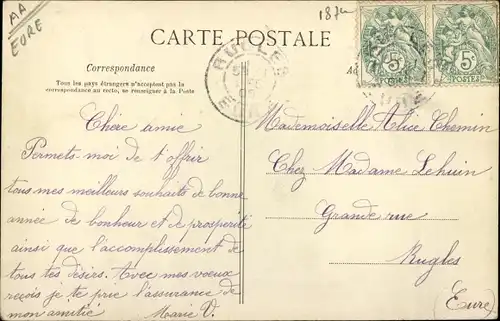 AA
EURE
187
CARTE POSTALE
RUGLES
5c
5c
POSTES
POSTES
Correspondance
Tous les pays étrangers n'acceptent pas la
correspondance au recto, se renseigner à la Poste.
Chère amie
Permets-moi de t'offrir
tous mes meilleurs souhaits de bonne
année de bonheur et de prospérité
ainsi que l'accomplissement de
tous tes désirs. Avec mes voeux
reçois je te prie l'assurance de
mon amitié Marie V.
Mademoiselle Alice Chemin
Chez Madame Lehuin
Grande rue
Rugles
(Eure)